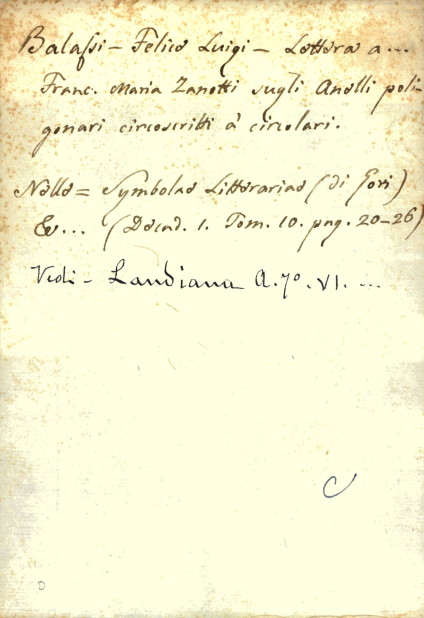 Balassi - Felice Luigi - Lettera a...
Franc. Maria Zanotti sugli Anelli poli-
gonari circoscritti a' circolari.
Nelle = Symbolae Litterariae (di Gori)
&... (Decad. 1. Tom. 10. pag. 20-26)
Vedi - Landiana A. 7º. VI. ...
C